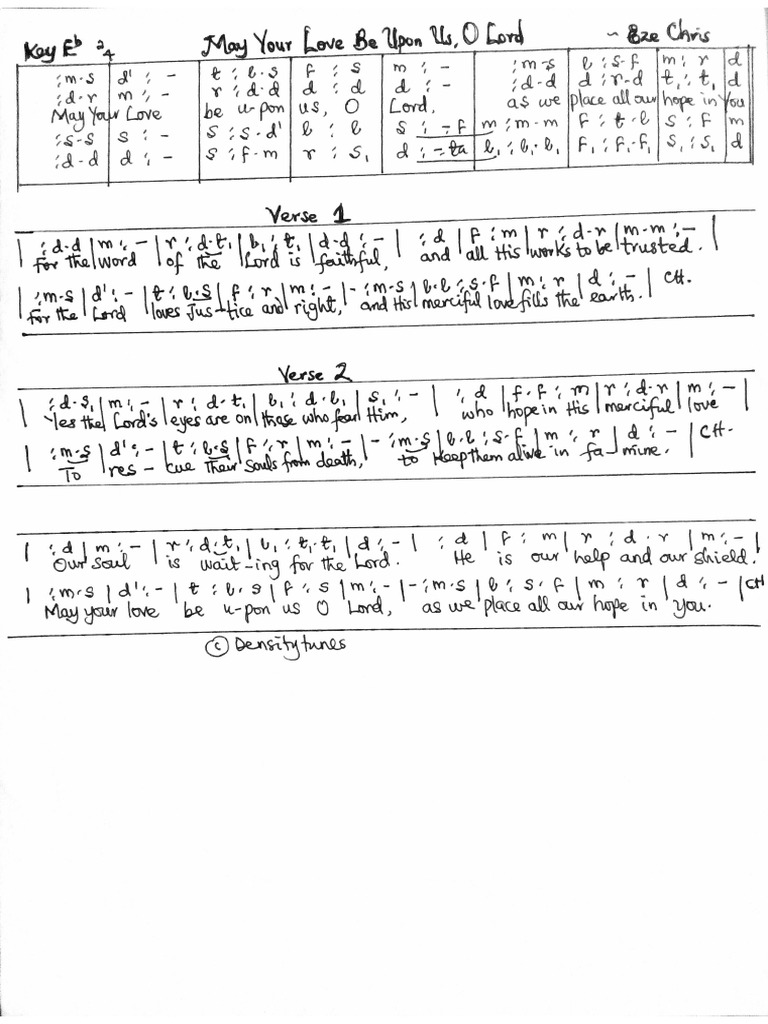 Key Eb 2/4 May Your Love Be Upon Us, O Lord ~ Eze Chris
:m.s | d' :- | t :l.s | f :s | m :- | :m-s | l :s-f | m :r | d
:d.r | m :- | r :d.d | d :d | d :- | :d-d | d :r-d | t, :t, | d
May Your Love be u-pon us, O Lord, as we place all our hope in You
:s-s | s :- | s :s-d' | l :l | s :-f | m :m-m | f :t-l | s :f | m
:d-d | d :- | s :f-m | r :s, | d :-ta | l, :l,-l, | f, :f,-f, | s, :s, | d
Verse 1
| :d-d | m :- | r :d-t, | l, :t, | d-d :- | :d | f :m | r :d-r | m-m :- |
for the word of the Lord is faithful, and all His works to be trusted.
| :m-s | d' :- | t :l.s | f :r | m :- | - :m-s | l-l :s-f | m :r | d :- | CH.
for the Lord loves Jus-tice and right, and His merciful love fills the earth.
Verse 2
| :d-s, | m :- | r :d-t, | l, :d-l, | s, :- | :d | f-f :m | r :d-r | m :- |
Yes the Lord's eyes are on those who fear Him, who hope in His merciful love
| :m-s | d' :- | t :l-s | f :r | m :- | - :m-s | l-l :s-f | m :r | d :- | CH-
To res-cue Their souls from death, to Keep them alive in fa-mine.
| :d | m :- | r :d-t, | l, :t,-t, | d :- | :d | f :m | r :d.r | m :- |
Our soul is wait-ing for the Lord. He is our help and our shield.
| :m-s | d' :- | t :l.s | f :s | m :- | - :m-s | l :s-f | m :r | d :- | CH
May your love be u-pon us O Lord, as we place all our hope in you.
© Densitytunes